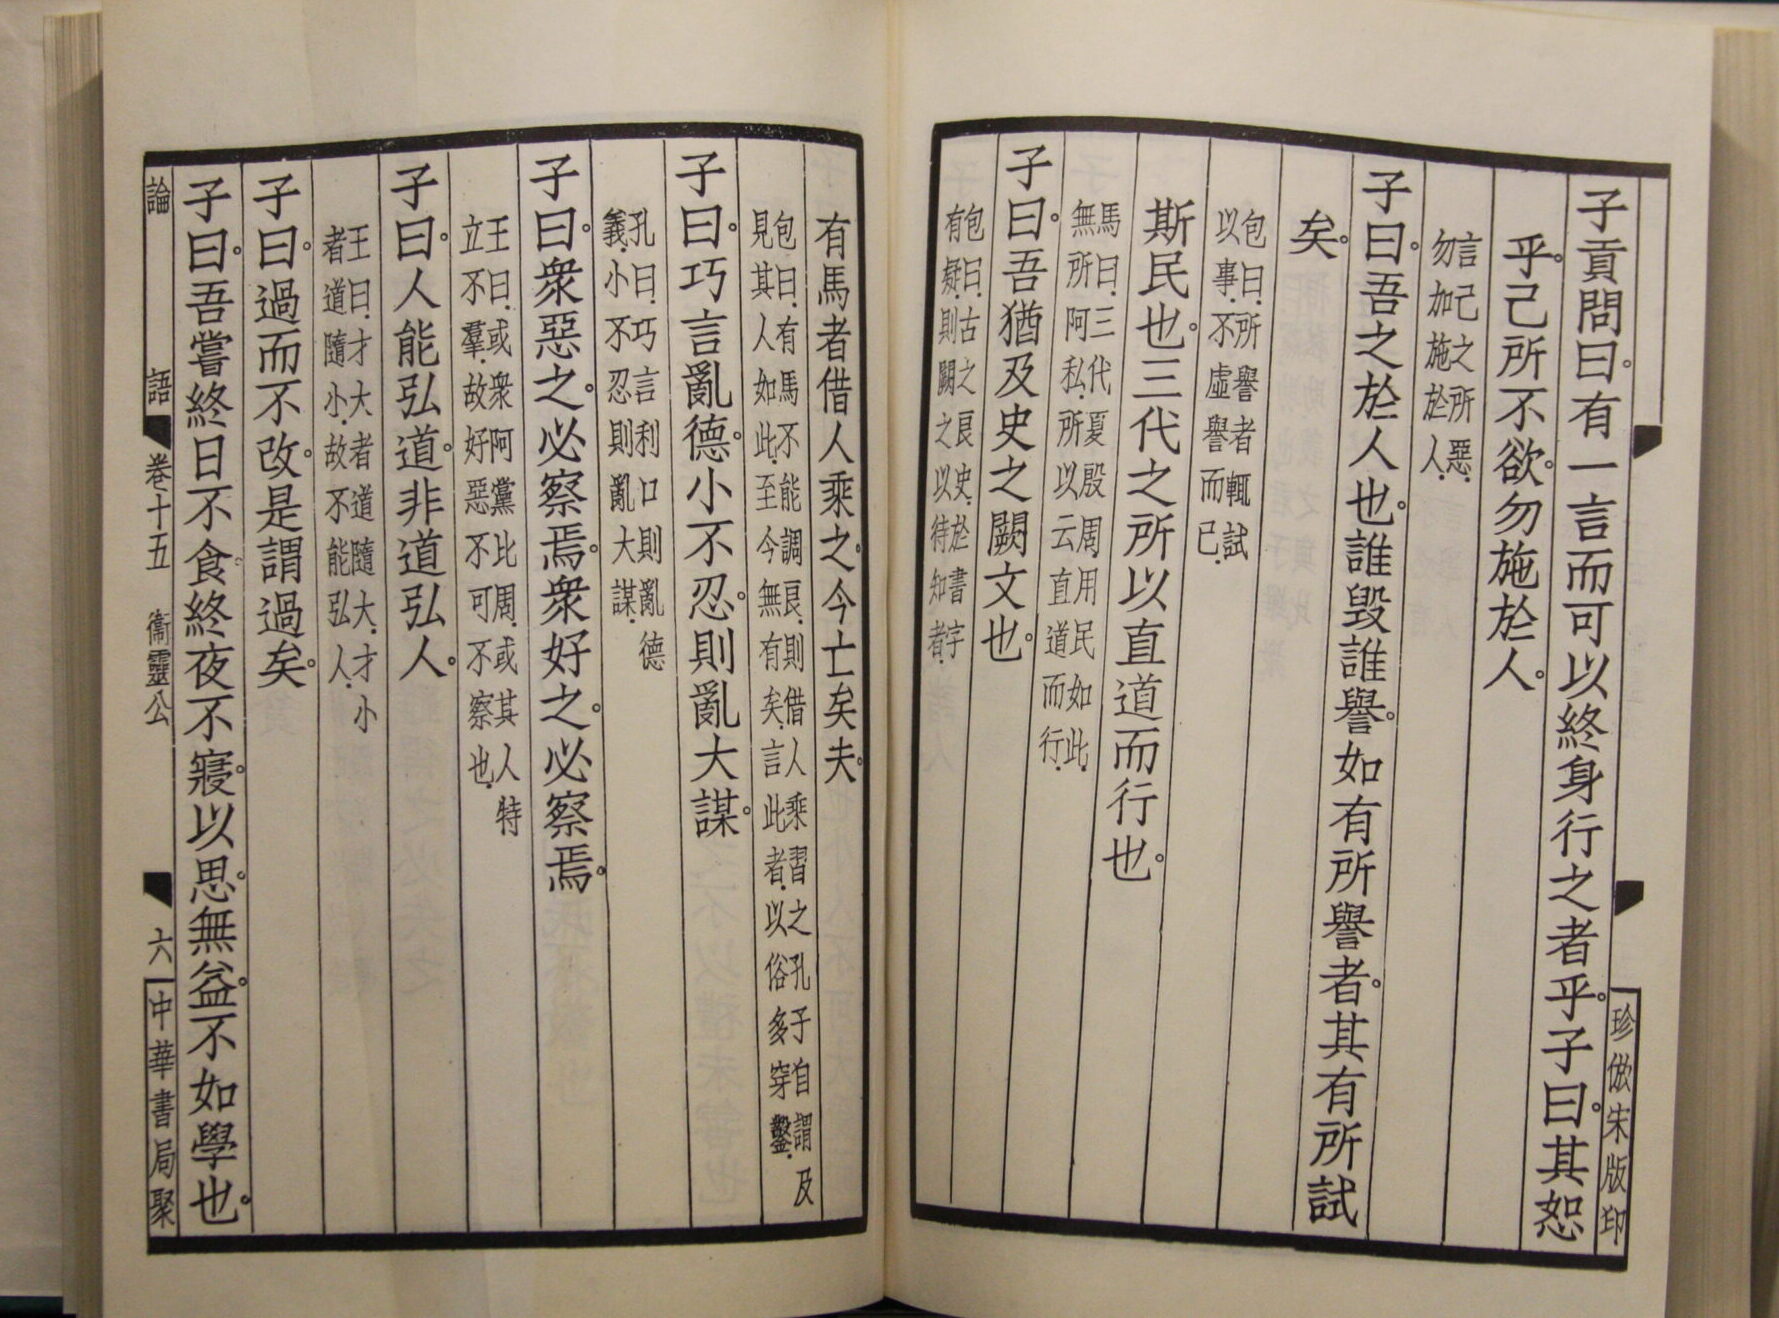 子貢問曰。有一言而可以終身行之者乎。子曰。其恕
乎。己所不欲。勿施於人。
言己之所惡.
勿加施於人.
子曰。吾之於人也。誰毀誰譽。如有所譽者。其有所試
矣。
包曰.所譽者輒試
以事.不虛譽而已.
斯民也。三代之所以直道而行也。
馬曰.三代夏殷周用民如此.
無所阿私.所以云直道而行.
子曰。吾猶及史之闕文也。
包曰.古之良史.於書字
有疑.則闕之以待知者.
珍倣宋版印
有馬者借人乘之。今亡矣夫。
包曰.有馬不能調良.則借人乘習之孔子自謂及
見其人如此.至今無有矣.言此者.以俗多穿鑿.
子曰。巧言亂德。小不忍。則亂大謀。
孔曰.巧言利口則亂德
義.小不忍則亂大謀.
子曰。衆惡之。必察焉。衆好之。必察焉。
王曰.或衆阿黨比周.或其人特
立不羣.故好惡不可不察也.
子曰。人能弘道。非道弘人。
王曰.才大者道隨大.才小
者道隨小.故不能弘人.
子曰。過而不改。是謂過矣。
子曰。吾嘗終日不食。終夜不寢。以思。無益。不如學也。
論語 卷十五 衞靈公 六 中華書局聚